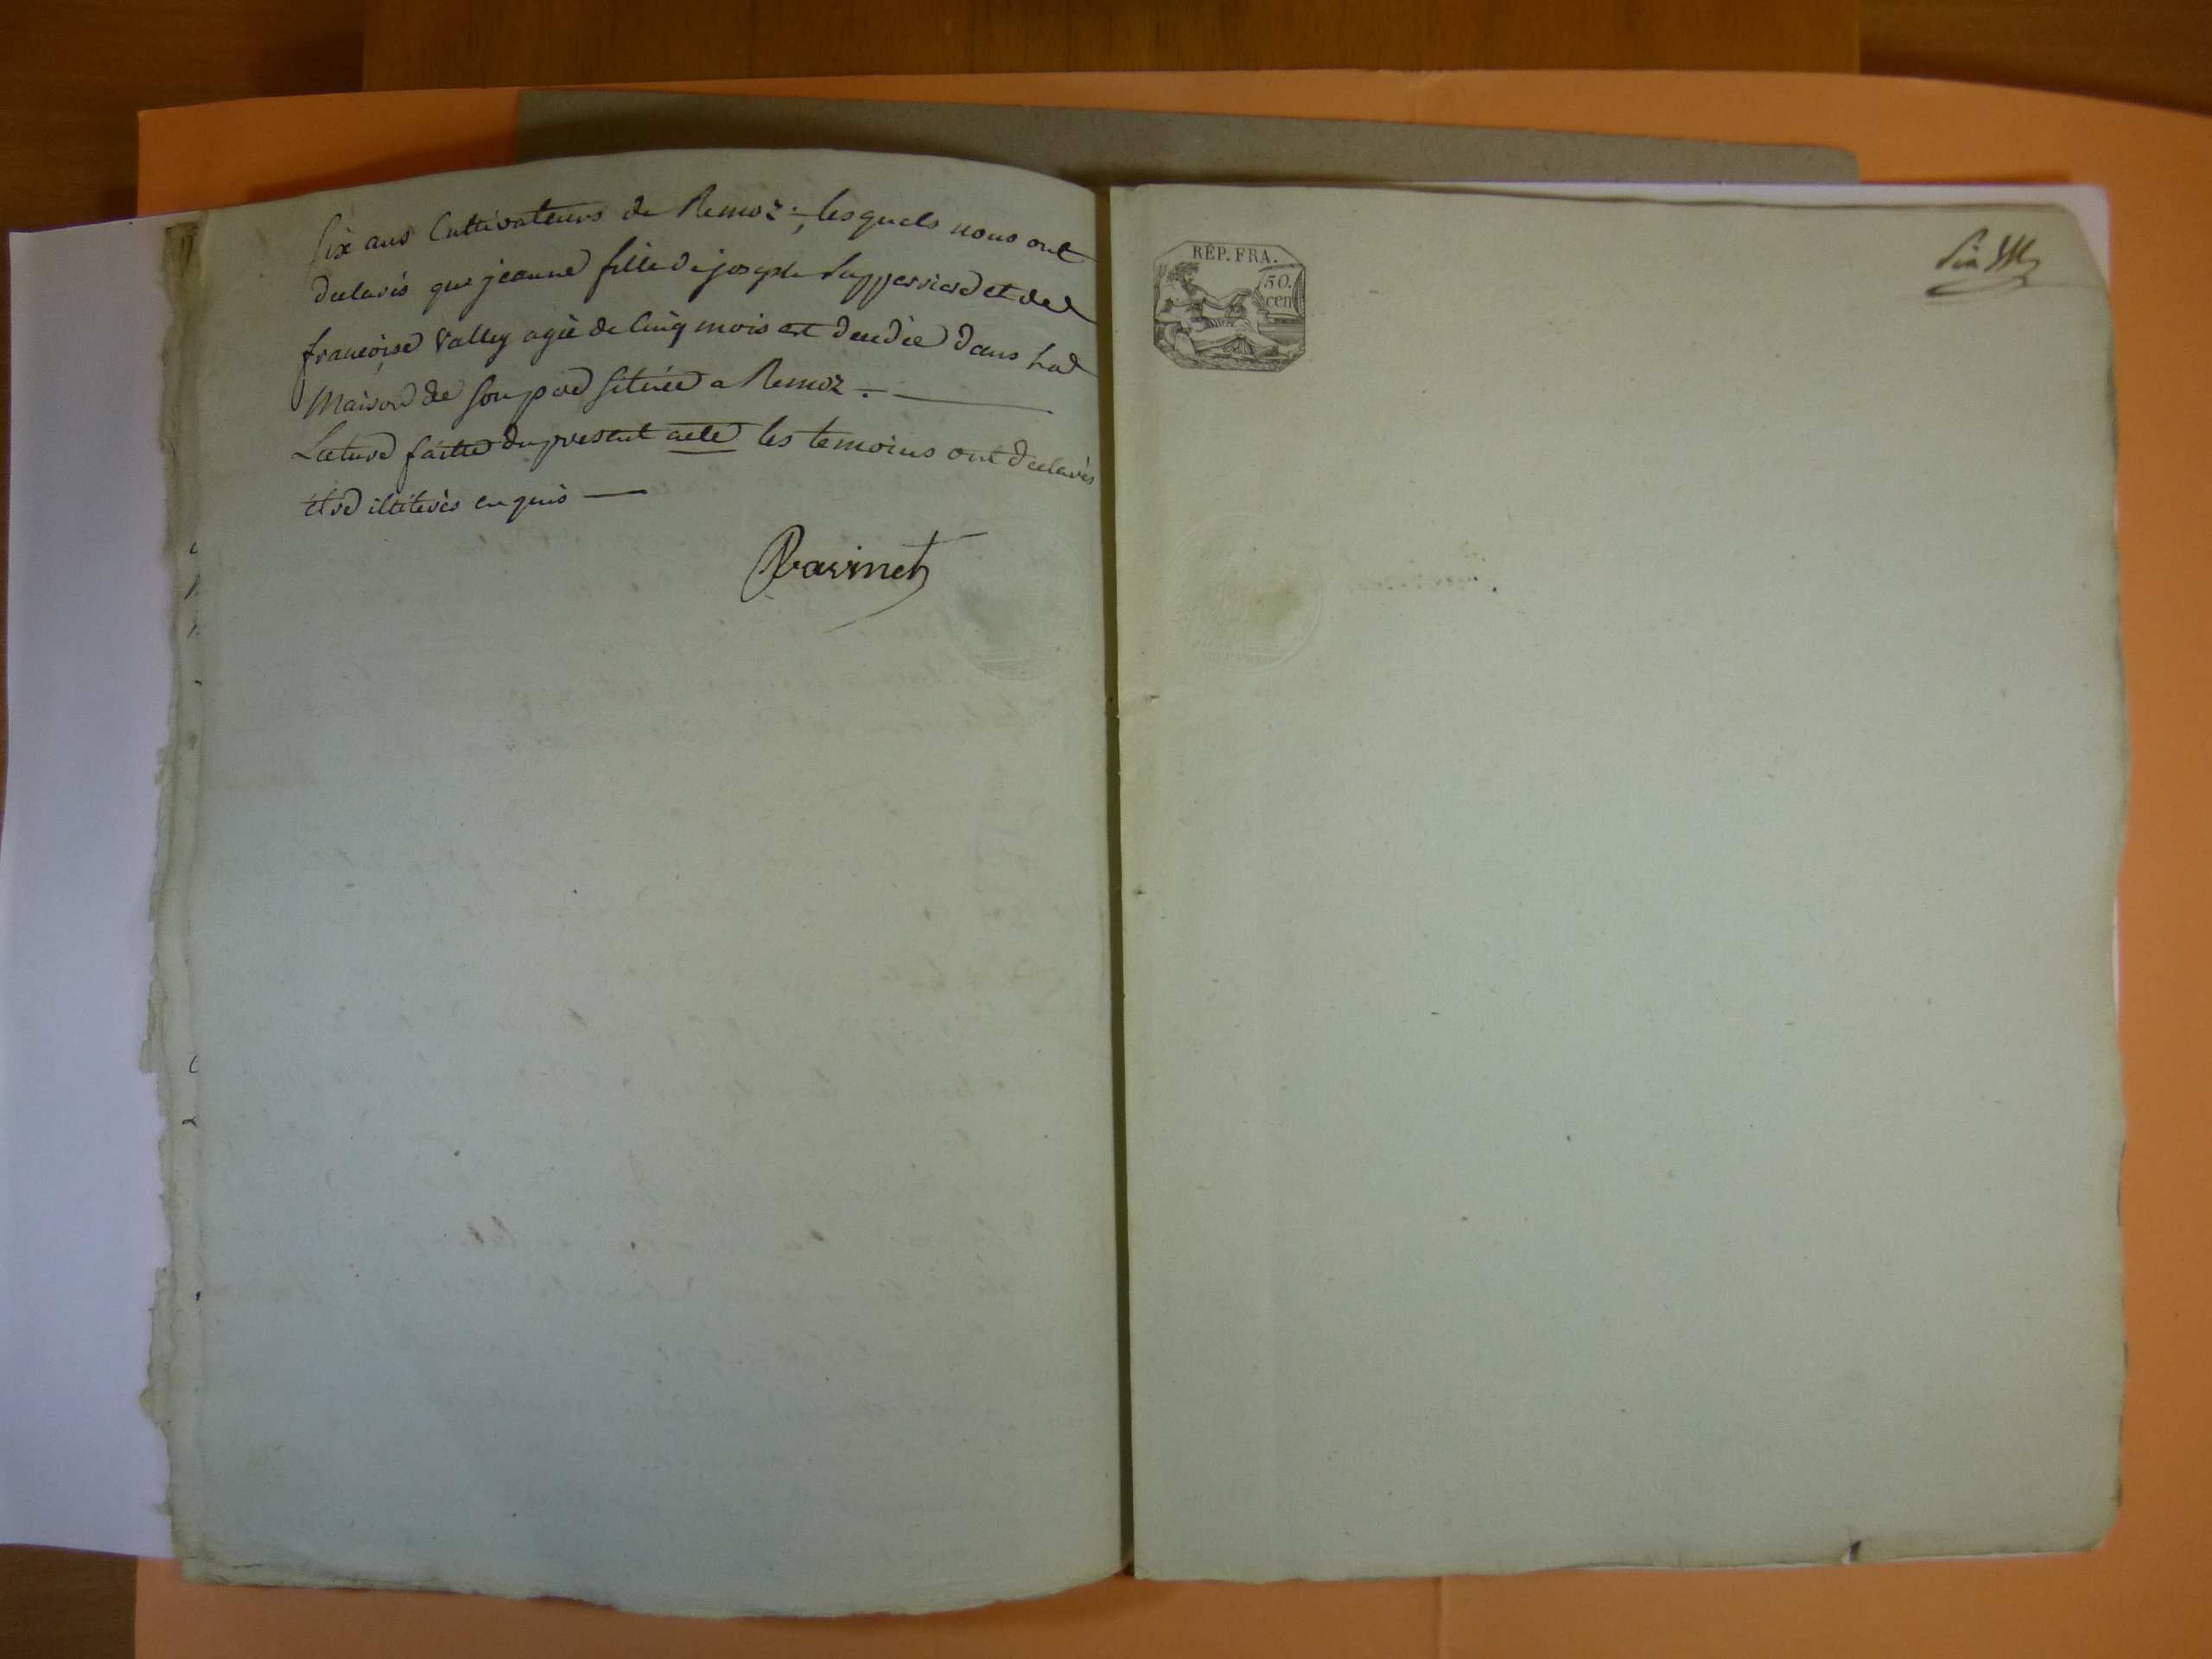 six ans Cultivateurs de Remoz; lesquels nous ont
declarés que jeanne fille de joseph Lapperriere et de
françoise Valley agée de Cinq mois est decedée dans La
Maison de son pere située a Remoz
Lecture faitte du present acte les temoins ont declarés
être illiterés enquis
Ravinet
RÉP. FRA.
50.
cen